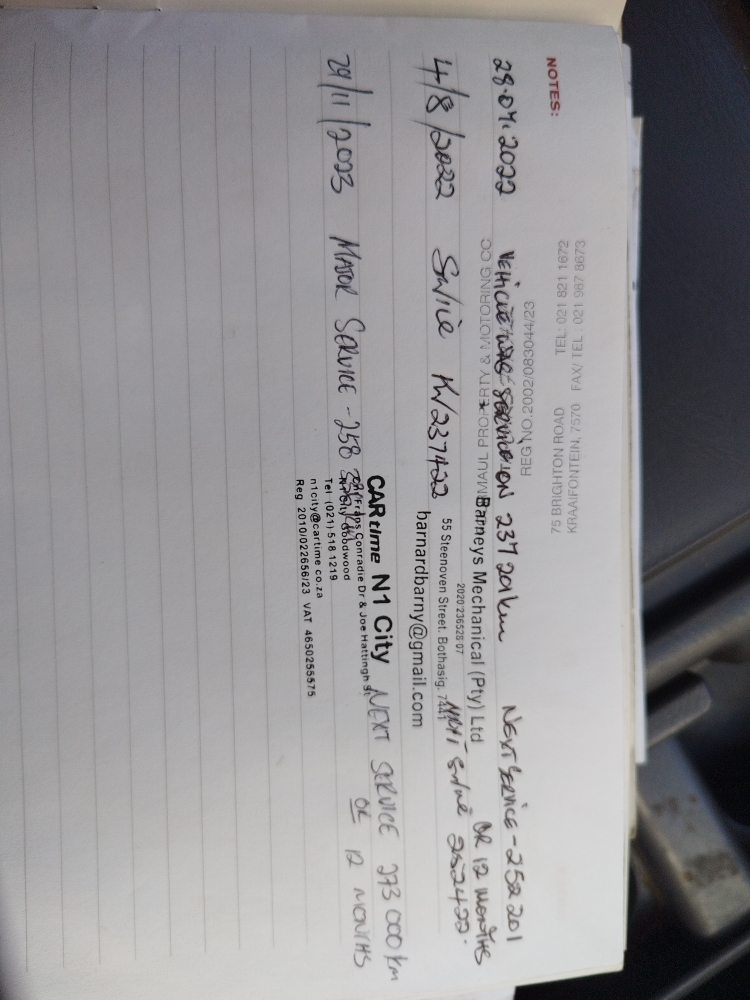 NOTES:
FAX/ TEL : 021 987 8673
TEL: 021 821 1672
KRAAIFONTEIN, 7570
75 BRIGHTON ROAD
REG NO.2002/083044/23
MAUL PROPERTY & MOTORING CC
28.04.2022 VEHICLE WAS SERVICE ON 237 201km NEXT SERVICE - 252 201
OR 12 MONTHS
Barneys Mechanical (Pty) Ltd
2020/236528/07
55 Steenoven Street, Bothasig, 7441
barnardbarny@gmail.com
4/8/2022 Service KM237422 252422.
CARtime N1 City
Conradie Dr & Joe Hattingh St
N1 City Goodwood
Tel (021) 518 1219
n1city@cartime.co.za
Reg 2010/022656/23 VAT 4650255575
29/11/2023 MAJOR SERVICE - 258 NEXT SERVICE 273 000 km
OR 12 MONTHS